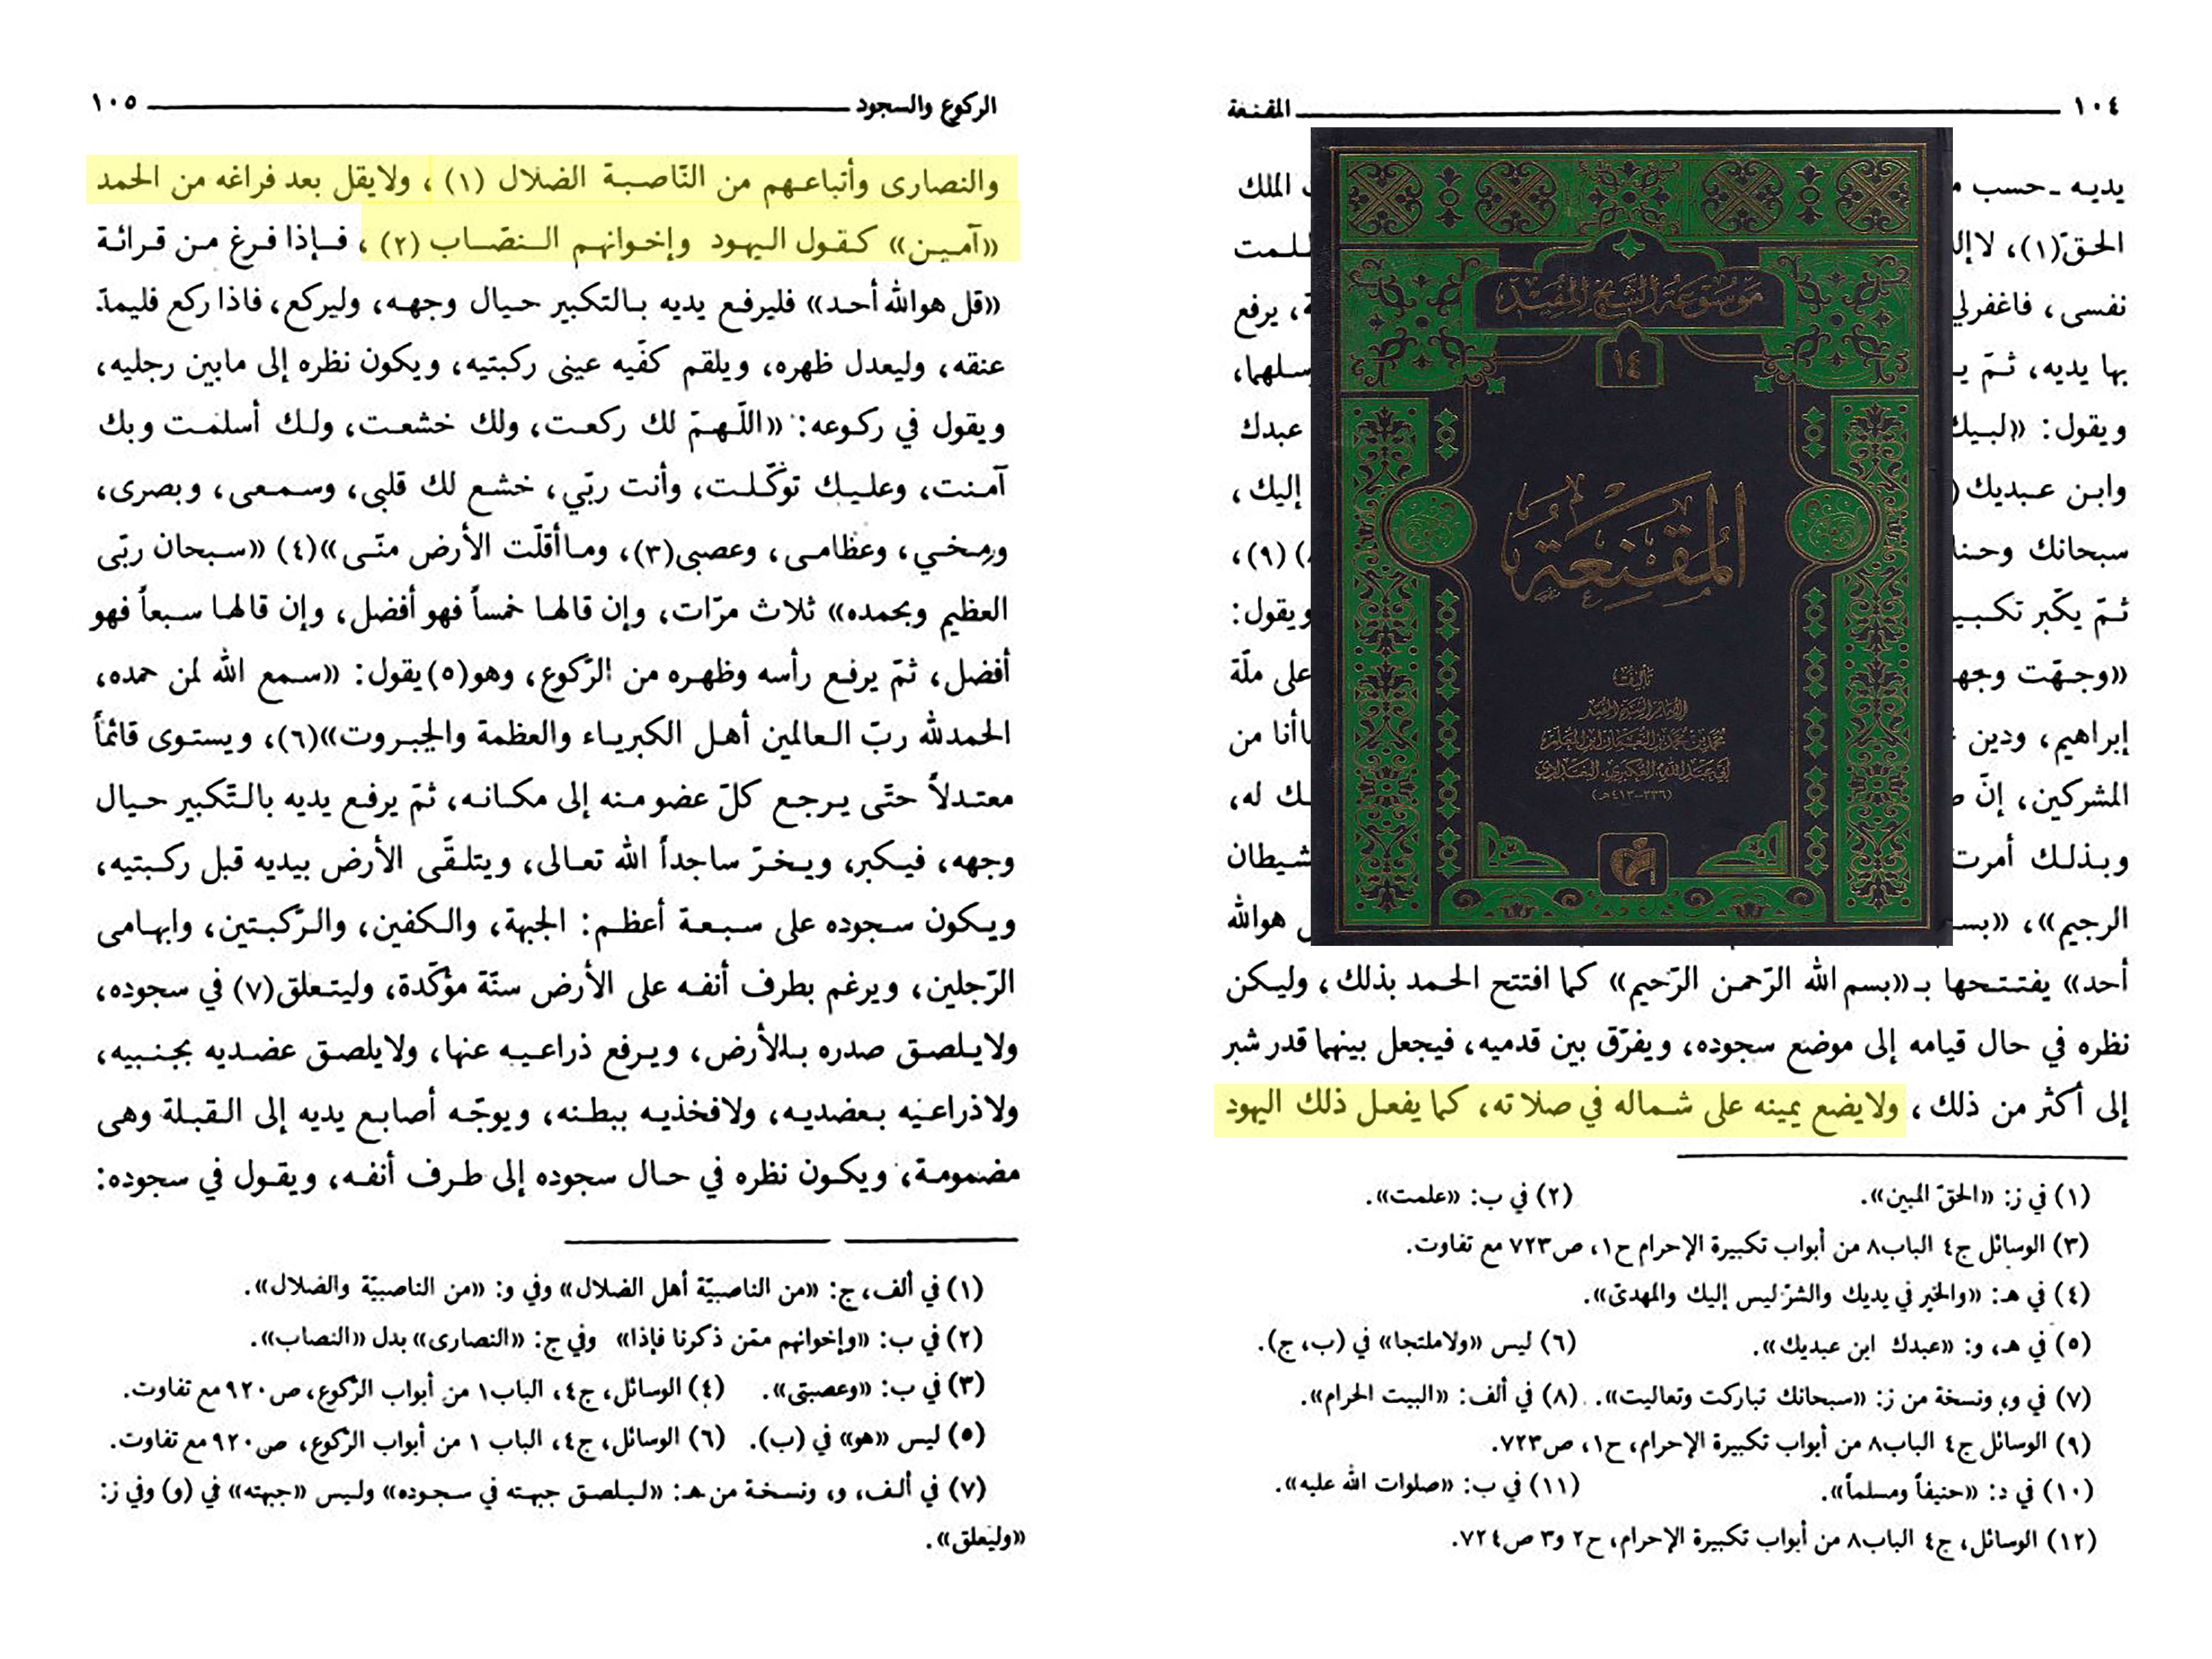 ١٠٤ المقنعة
يديه ـ حسب
الملك
الحقّ(١)، لا إله
ظلمت
نفسى، فاغفرلي
يرفع
بها يديه، ثمّ
ويقول: «لبيك
عبدك
وابن عبديك
إليك،
سبحانك
(٩)،
ثمّ يكّبر
ويقول:
«وجهّت
على ملّة
إبراهيم، ودين
أنا من
المشركين، إنّ
له،
وبذلك أمرت
الرجيم»،
هوالله
موسوعة الشيخ المفيد
١٤
المقنعة
تأليف
الإمام الشيخ المفيد
محمد بن محمد بن النعمان ابن المعلم
أبي عبد الله، العكبري، البغدادي
(٣٣٦-٤١٣هـ)
أحد» يفتتحها بـ«بسم الله الرّحمن الرّحيم» كما افتتح الحمد بذلك، وليكن
نظره في حال قيامه إلى موضع سجوده، ويفرّق بين قدميه، فيجعل بينهما قدر شبر
إلى أكثر من ذلك، ولايضع يمينه على شماله في صلاته، كما يفعل ذلك اليهود
(١) في ز: «الحقّ المبين». (٢) في ب: «علمت».
(٣) الوسائل ج٤ الباب٨ من أبواب تكبيرة الإحرام ح١، ص٧٢٣ مع تفاوت.
(٤) في هـ: «والخير في يديك والشرّ ليس إليك والمهدىّ».
(٥) في هـ، و: «عبدك ابن عبديك». (٦) ليس «ولاملتجا» في (ب، ج).
(٧) في و، ونسخة من ز: «سبحانك تباركت وتعاليت». (٨) في ألف: «البيت الحرام».
(٩) الوسائل ج٤ الباب٨ من أبواب تكبيرة الإحرام، ح١، ص٧٢٣.
(١٠) في د: «حنيفاً ومسلماً». (١١) في ب: «صلوات الله عليه».
(١٢) الوسائل، ج٤ الباب٨ من أبواب تكبيرة الإحرام، ح٢ و٣ ص٧٢٤.
الركوع والسجود ١٠٥
والنصارى وأتباعهم من النّاصبة الضلال (١)، ولايقل بعد فراغه من الحمد
«آمين» كقول اليهود وإخوانهم النصّاب (٢)، فإذا فرغ من قرائة
«قل هوالله أحد» فليرفع يديه بالتكبير حيال وجهه، وليركع، فاذا ركع فليمدّ
عنقه، وليعدل ظهره، ويلقم كفّيه عينى ركبتيه، ويكون نظره إلى مابين رجليه،
ويقول في ركوعه: «اللّهمّ لك ركعت، ولك خشعت، ولك أسلمت وبك
آمنت، وعليك توكّلت، وأنت ربّي، خشع لك قلبى، وسمعى، وبصرى،
ومخي، وعظامى، وعصبى(٣)، وماأقلّت الأرض منّى»(٤) «سبحان ربّى
العظيم وبحمده» ثلاث مرّات، وإن قالها خمساً فهو أفضل، وإن قالها سبعاً فهو
أفضل، ثمّ يرفع رأسه وظهره من الرّكوع، وهو(٥)يقول: «سمع الله لمن حمده،
الحمدلله ربّ العالمين أهل الكبرياء والعظمة والجبروت»(٦)، ويستوى قائماً
معتدلاً حتّى يرجع كلّ عضو منه إلى مكانه، ثمّ يرفع يديه بالتّكبير حيال
وجهه، فيكبر، ويخرّ ساجداً الله تعالى، ويتلقّى الأرض بيديه قبل ركبتيه،
ويكون سجوده على سبعة أعظم: الجبهة، والكفين، والرّكبتين، وابهامى
الرّجلين، ويرغم بطرف أنفه على الأرض سنّة مؤكّدة، وليتعلق(٧) في سجوده،
ولايلصق صدره بالأرض، ويرفع ذراعيه عنها، ولايلصق عضديه بجنبيه،
ولاذراعيه بعضديه، ولافخذيه ببطنه، ويوجّه أصابع يديه إلى القبلة وهى
مضمومة، ويكون نظره في حال سجوده إلى طرف أنفه، ويقول في سجوده:
(١) في ألف، ج: «من الناصبيّة أهل الضلال» وفي و: «من الناصبيّة والضلال».
(٢) في ب: «وإخوانهم ممّن ذكرنا فإذا» وفي ج: «النصارى» بدل «النصاب».
(٣) في ب: «وعصبتى». (٤) الوسائل، ج٤، الباب١ من أبواب الرّكوع، ص٩٢٠ مع تفاوت.
(٥) ليس «هو» في (ب). (٦) الوسائل، ج٤، الباب ١ من أبواب الرّكوع، ص٩٢٠ مع تفاوت.
(٧) في ألف، و، ونسخة من هـ: «ليلصق جبهته في سجوده» وليس «جبهته» في (و) وفي ز:
«وليعلق».